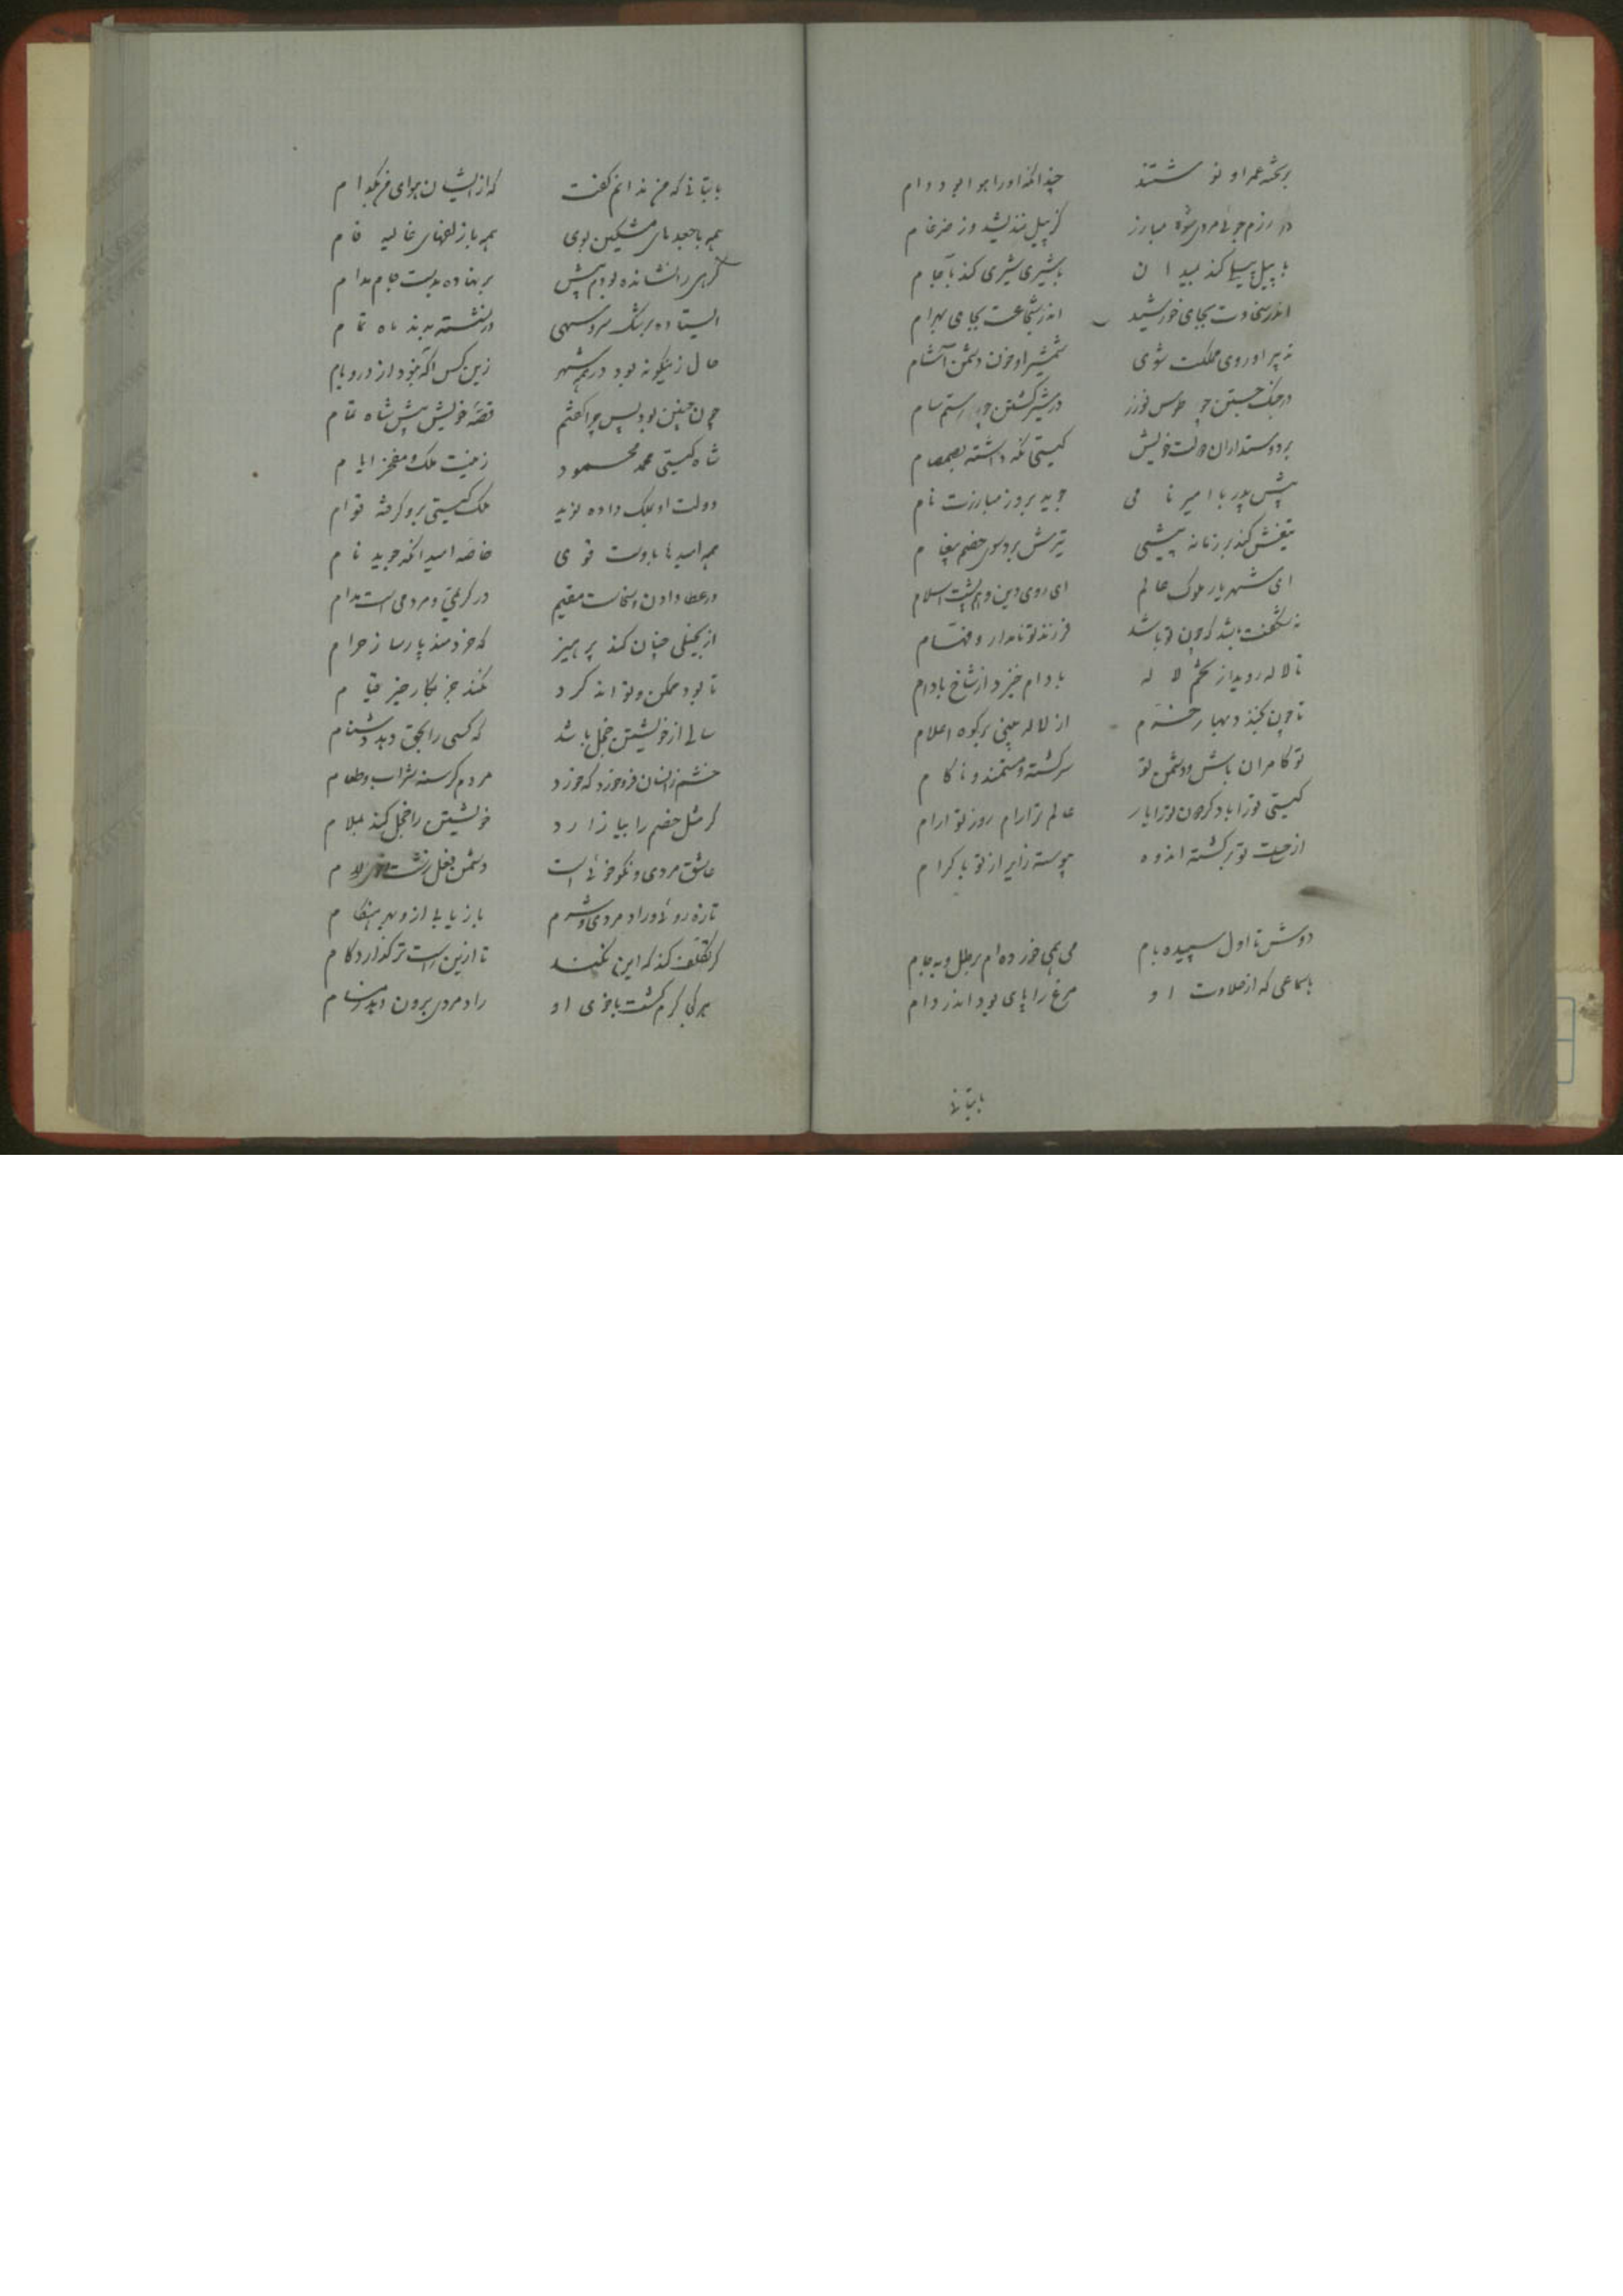 بر تخته عمر او نوشتند چندانکه او را هوا بود دام
در رزم چو مردی شود مبارز کز پیل نندیشد وز ضرغام
با پیل پیلی کند بمیدان با شیر شیری کند بآجام
اندر سخاوت بجای خورشید اندر شجاعت بجای بهرام
تدبیر او روی مملکت شوی شمشیر او خون دشمن آشام
در جنگ جستن چو طوس نوذر در شیر کشتن چو رستم سام
بر دوستداران دولت خویش گیتی نگه داشته بصمصام
پیش پدر با امیر نامی جوید بروز مبارزت نام
تیغش کند بر زمانه پیشی تیرش برد سوی خصم پیغام
ای شهریار ملوک عالم ای روی دین و ای پشت اسلام
نه شگفت باشد که چون تو باشد فرزند تو نامدار و فهام
تا لاله روید از تخم لاله بادام خیزد از شاخ بادام
تا چون بخندد بهار خرم از لاله بینی بر کوه اعلام
تو کامران باش و دشمن تو سرگشته و مستمند و ناکام
گیتی ترا باد گردون ترا یار عالم ترا رام روز تو ارام
از خلعت تو برگشته اندوه پیوسته زایر از تو با کرام
دوش تا اول سپیده بام می همی خورده ام برطل و بجام
با سماعی که از حلاوت او مرغ را پای بود اندر دام
با بتانی
با بتانی که من ندانم گفت که از ایشان هوای من بکدام
همه با جعدهای مشکین بوی همه با زلفهای غالیه فام
گرهی را نشانده بودم پیش برنهاده بدست جام مدام
ایستاده برشک سرو سهی در نشسته بدند ماه تمام
حال زینگونه بود در همه شهر زین کس آگه نبود از در و بام
چون چنین بود پس چرا گفتم قصه خویش پیش شاه تمام
شاه گیتی محمد محمود زینت ملک و مفخر ایام
دولت او بملک داده نوید ملک گیتی برو گرفته قوام
همه امیدها باوست قوی خاصه امید آنکه جوید نام
در عطا دادن و سخاست مقیم در کریمی و مردمی است مدام
از بخیلی چنان کند پرهیز که خردمند پارسا ز حرام
تا بود ممکن و تواند کرد نکند جز بکار خیر قیام
سالی از خویشتن خجل باشد که کسی را بحق دهد دشنام
خشم زانسان فرو خورد که خورد مردم گرسنه شراب و طعام
گر مثل خصم را بیازارد خویشتن را خجل کند بملام
عاشق مردی و نکو خوئی است دشمن فعل زشت و خوی لئام
تازه روئی و راد مردی و شرم باز یابی از و بهر هنگام
گر تکلف کند که این نکند تا ازین راست تر گذارد کام
هر کی گرم گشت با خوی او راد مردی برون دمد ز مسام